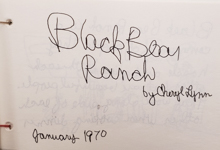 Black Bear
Ranch
by Cheryl Lynn
January 1970